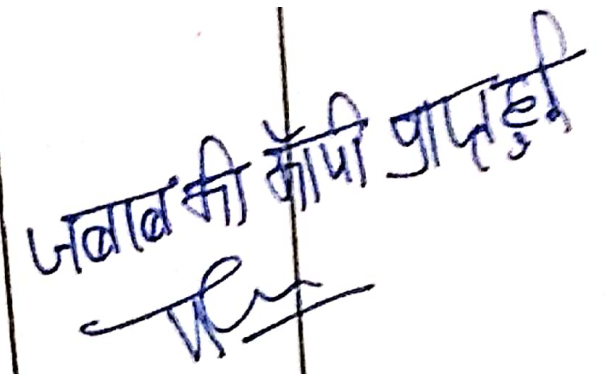 जबाब की कॉपी प्राप्त हुई